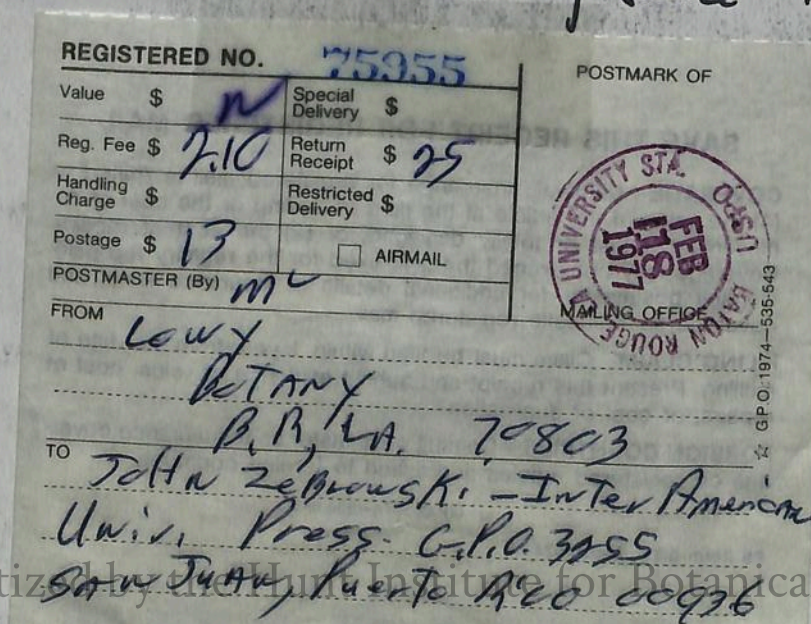 REGISTERED NO. 75955
POSTMARK OF
Value $ N
Special Delivery $
Reg. Fee $ 2.10
Return Receipt $ 25
Handling Charge $
Restricted Delivery $
Postage $ 13
AIRMAIL
POSTMASTER (By)
MAILING OFFICE
BATON ROUGE LA UNIVERSITY STA. USPO
FEB
18
1977
☆ G.P.O.: 1974-535-543
FROM Lowy
BOTANY
B.R., LA. 70803
TO JOHN ZeBrowski - Inter American
Univ. Press G.P.O. 3255
SAN JUAN, Puerto Rico 00936
by the Hunt Institute for Botanica